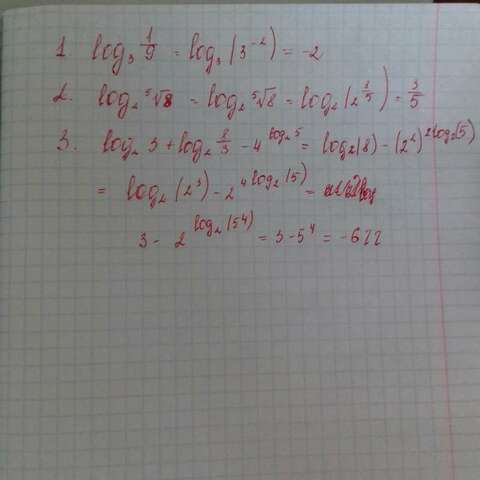 1. log₃ 1/9 = log₃ (3⁻²) = -2
2. log₂ ⁵√8 = log₂ ⁵√8 = log₂ (2^(3/5)) = 3/5
3. log₂ 3 + log₂ 8/3 - 4^(log₂ 5) = log₂(8) - (2²)^(2log₂(5))
= log₂ (2³) - 2^(4 log₂(5)) =
3 - 2^(log₂(5⁴)) = 3 - 5⁴ = -622